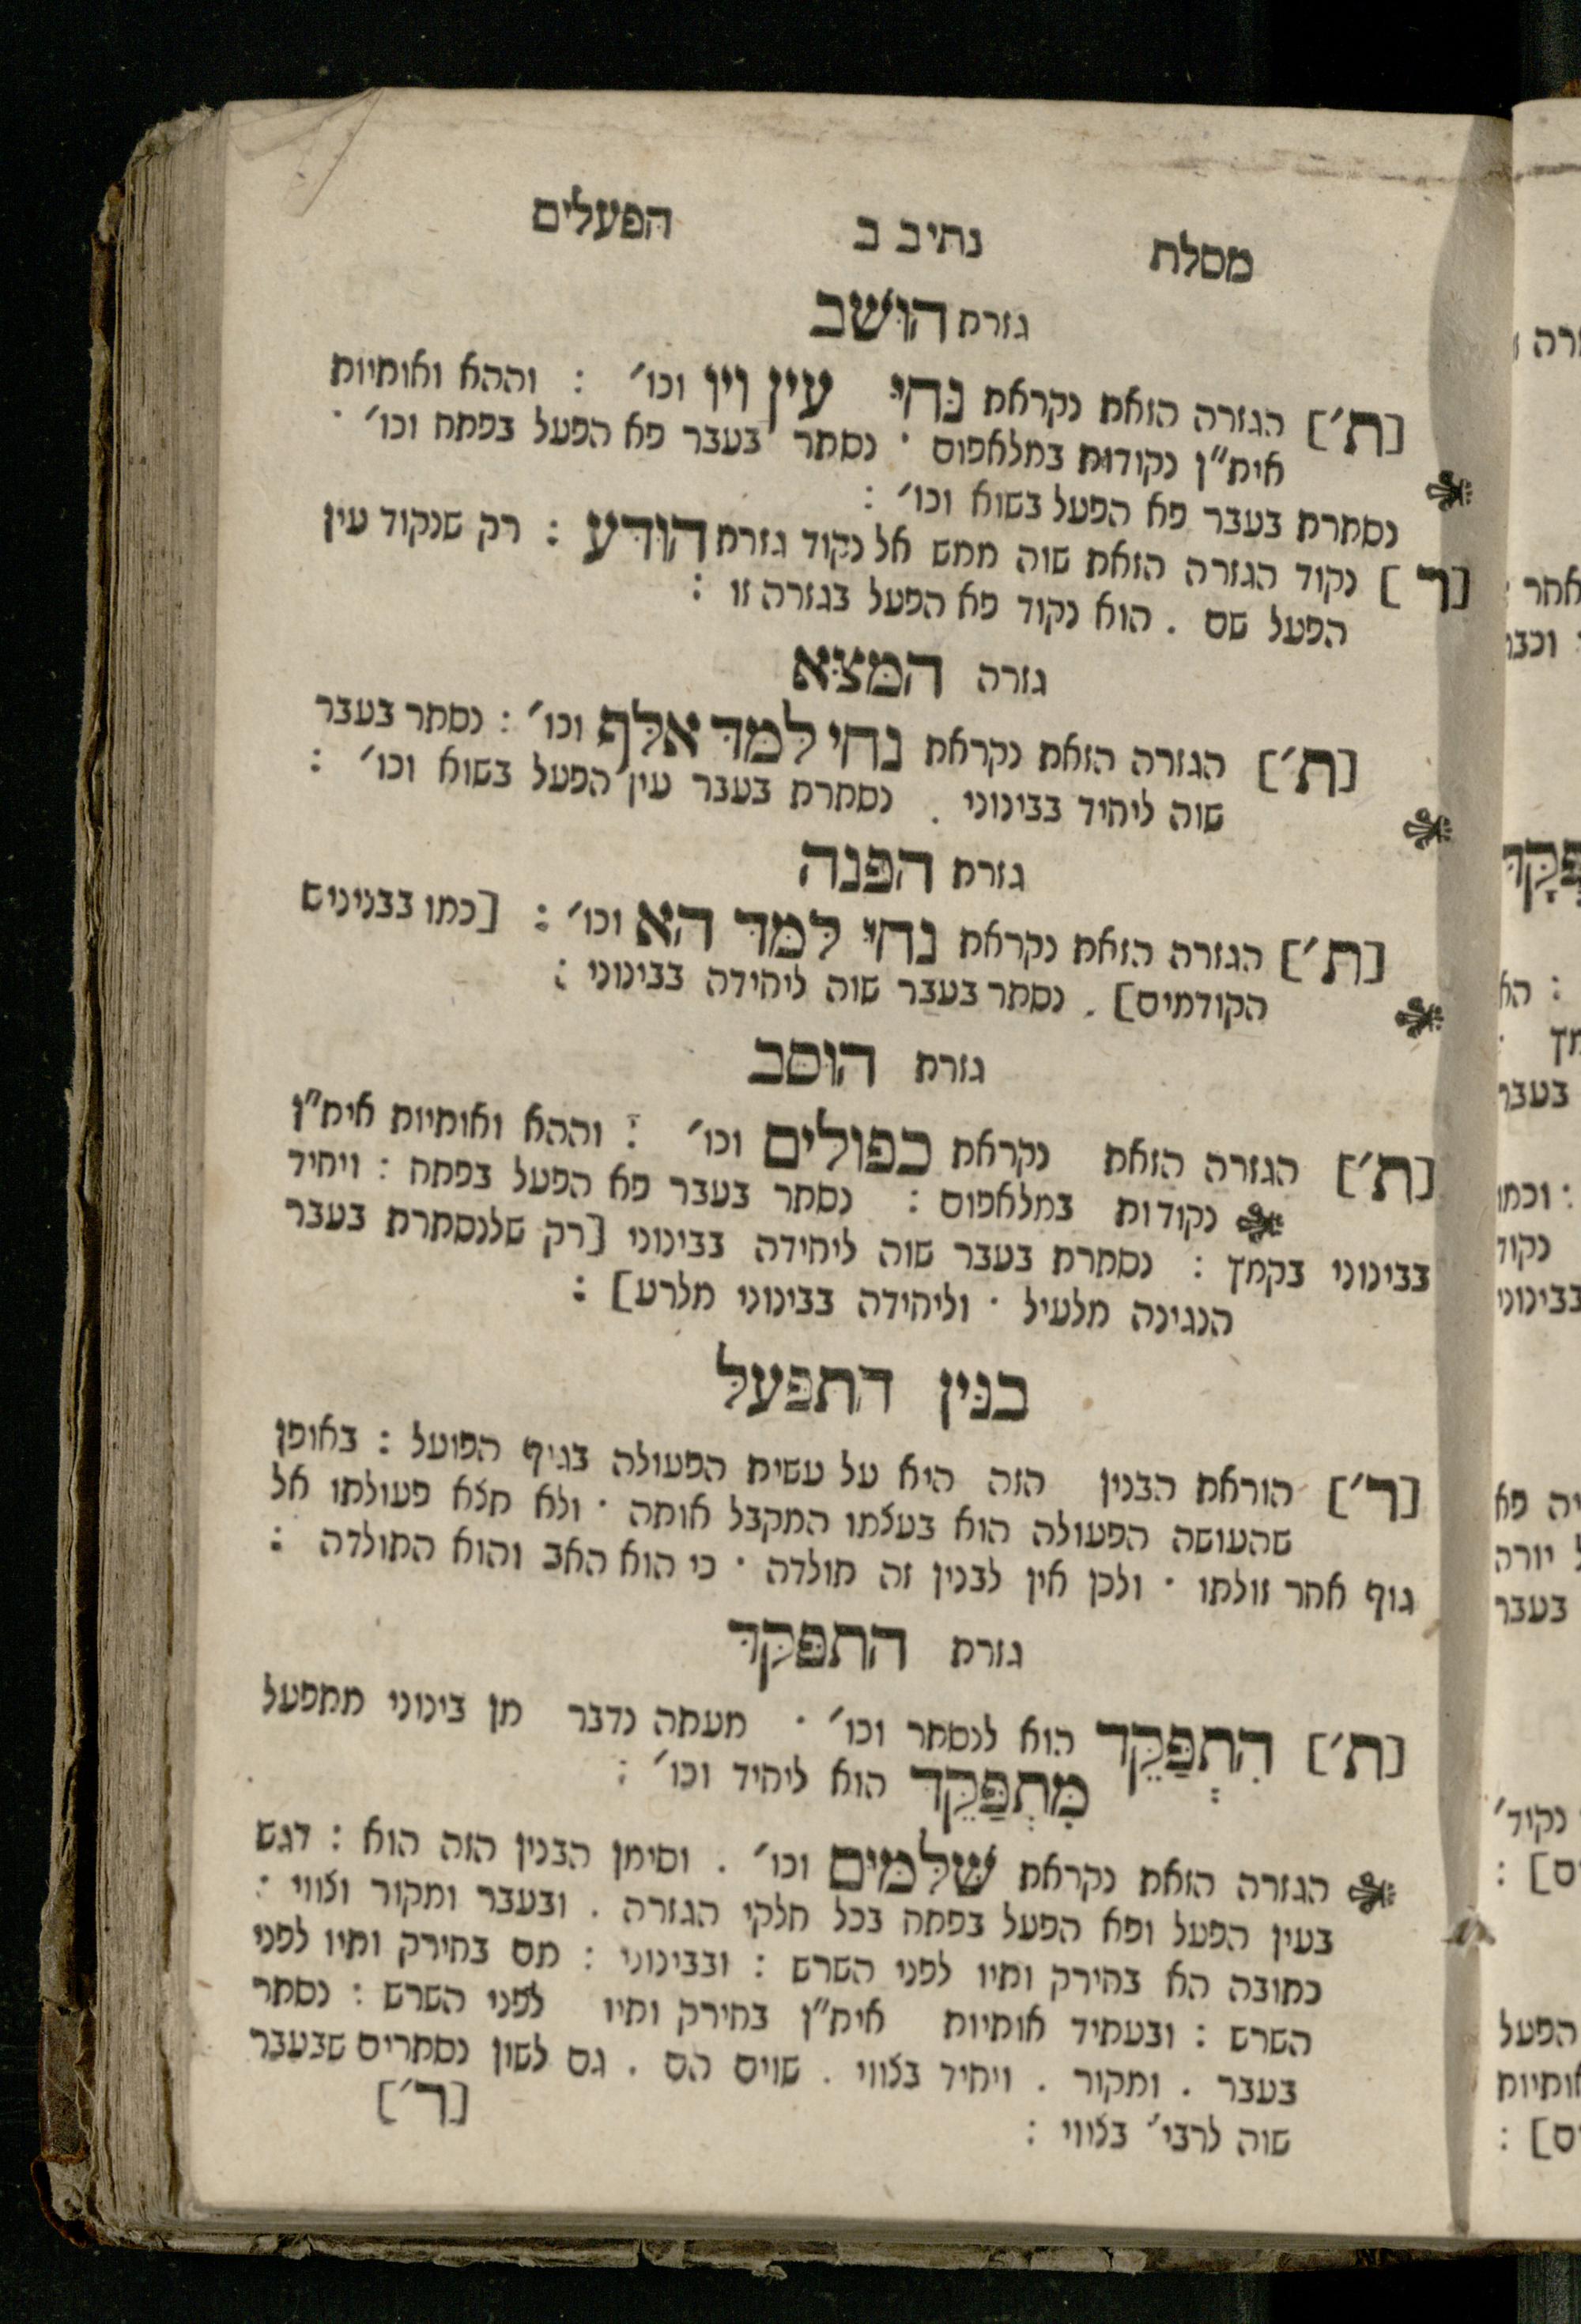 מסלת נתיב ב הפעלים
גזרת הושב
[ת׳] הגזרה הזאת נקראת נחי עין ויו וכו׳ : וההא ואותיות
אית״ן נקודות במלאפום · נסתר בעבר פא הפעל בפתח וכו׳ ·
נסתרת בעבר פא הפעל בשוא וכו׳ :
[ר] נקוד הגזרה הזאת שוה ממש אל נקוד גזרת הודע : רק שנקוד עין
הפעל שם . הוא נקוד פא הפעל בגזרה זו :
גזרה המצא
[ת׳] הגזרה הזאת נקראת נחי למד אלף וכו׳ : נסתר בעבר
שוה ליחיד בבינוני . נסתרת בעבר עין הפעל בשוא וכו׳ :
גזרת הפנה
[ת׳] הגזרה הזאת נקראת נחי למד הא וכו׳ : [כמו בבנינים
הקודמים] . נסתר בעבר שוה ליחידה בבינוני :
גזרת הוסב
[ת׳] הגזרה הזאת נקראת כפולים וכו׳ : וההא ואותיות אית״ן
נקודות במלאפום : נסתר בעבר פא הפעל בפתח : ויחיד
בבינוני בקמץ : נסתרת בעבר שוה ליחידה בבינוני [רק שלנסתרת בעבר
הנגינה מלעיל · וליחידה בבינוני מלרע] :
בנין התפעל
[ר׳] הוראת הבנין הזה היא על עשית הפעולה בגיף הפועל : באופן
שהעושה הפעולה הוא בעצמו המקבל אותה · ולא תצא פעולתו אל
גוף אחר זולתו · ולכן אין לבנין זה תולדה · כי הוא האב והוא התולדה :
גזרת התפקד
[ת׳] הִתְפַּקֵּד הוא לנסתר וכו׳ · מעתה נדבר מן בינוני מתפעל
מִתְפַּקֵּד הוא ליחיד וכו׳ :
הגזרה הזאת נקראת שלמים וכו׳ . וסימן הבנין הזה הוא : דגש
בעין הפעל ופא הפעל בפתח בכל חלקי הגזרה . ובעבר ומקור וצווי :
כתובה הא בחירק ותיו לפני השרש : ובבינוני : מם בחירק ותיו לפני
השרש : ובעתיד אותיות אית״ן בחירק ותיו לפני השרש : נסתר
בעבר . ומקור . ויחיד בצווי . שוים הם . גם לשון נסתרים שבעבר
שוה לרבי׳ בצווי :
[ר׳]